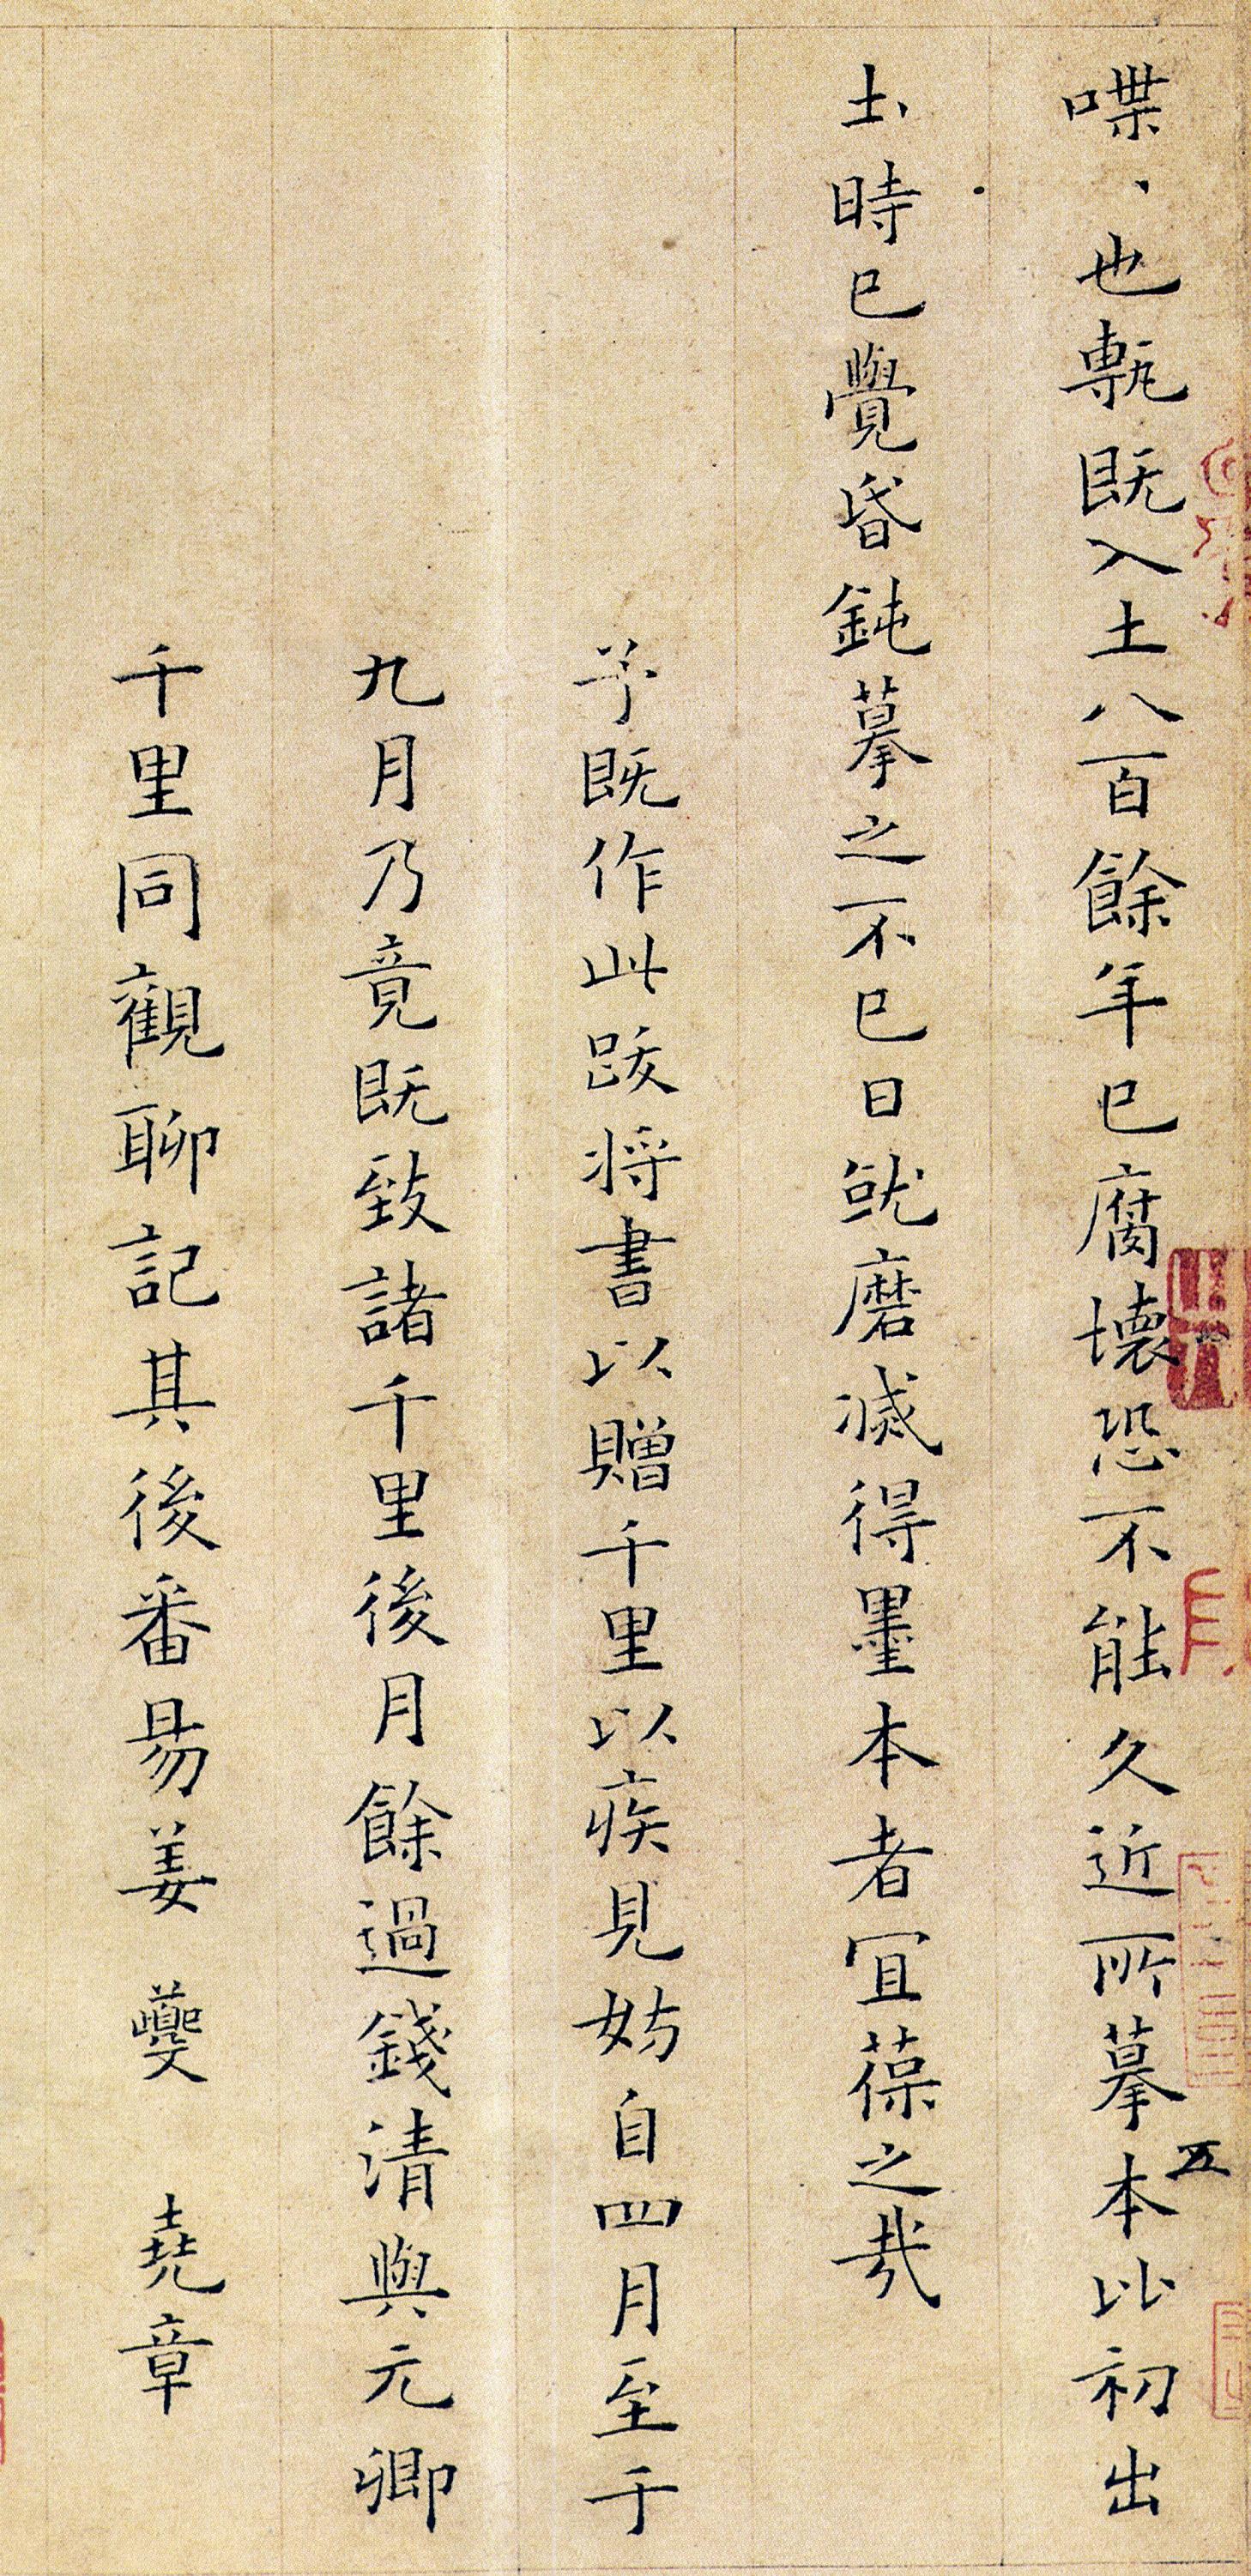 喋、也甎既入土八百餘年已腐壞恐不能久近所摹本比初出
土時已覺昏鈍摹之不已日就磨滅得墨本者宜葆之哉
予既作此跋将書以贈千里以疾見妨自四月至于
九月乃竟既致諸千里後月餘過錢清與元卿
千里同觀聊記其後番昜姜夔堯章
五